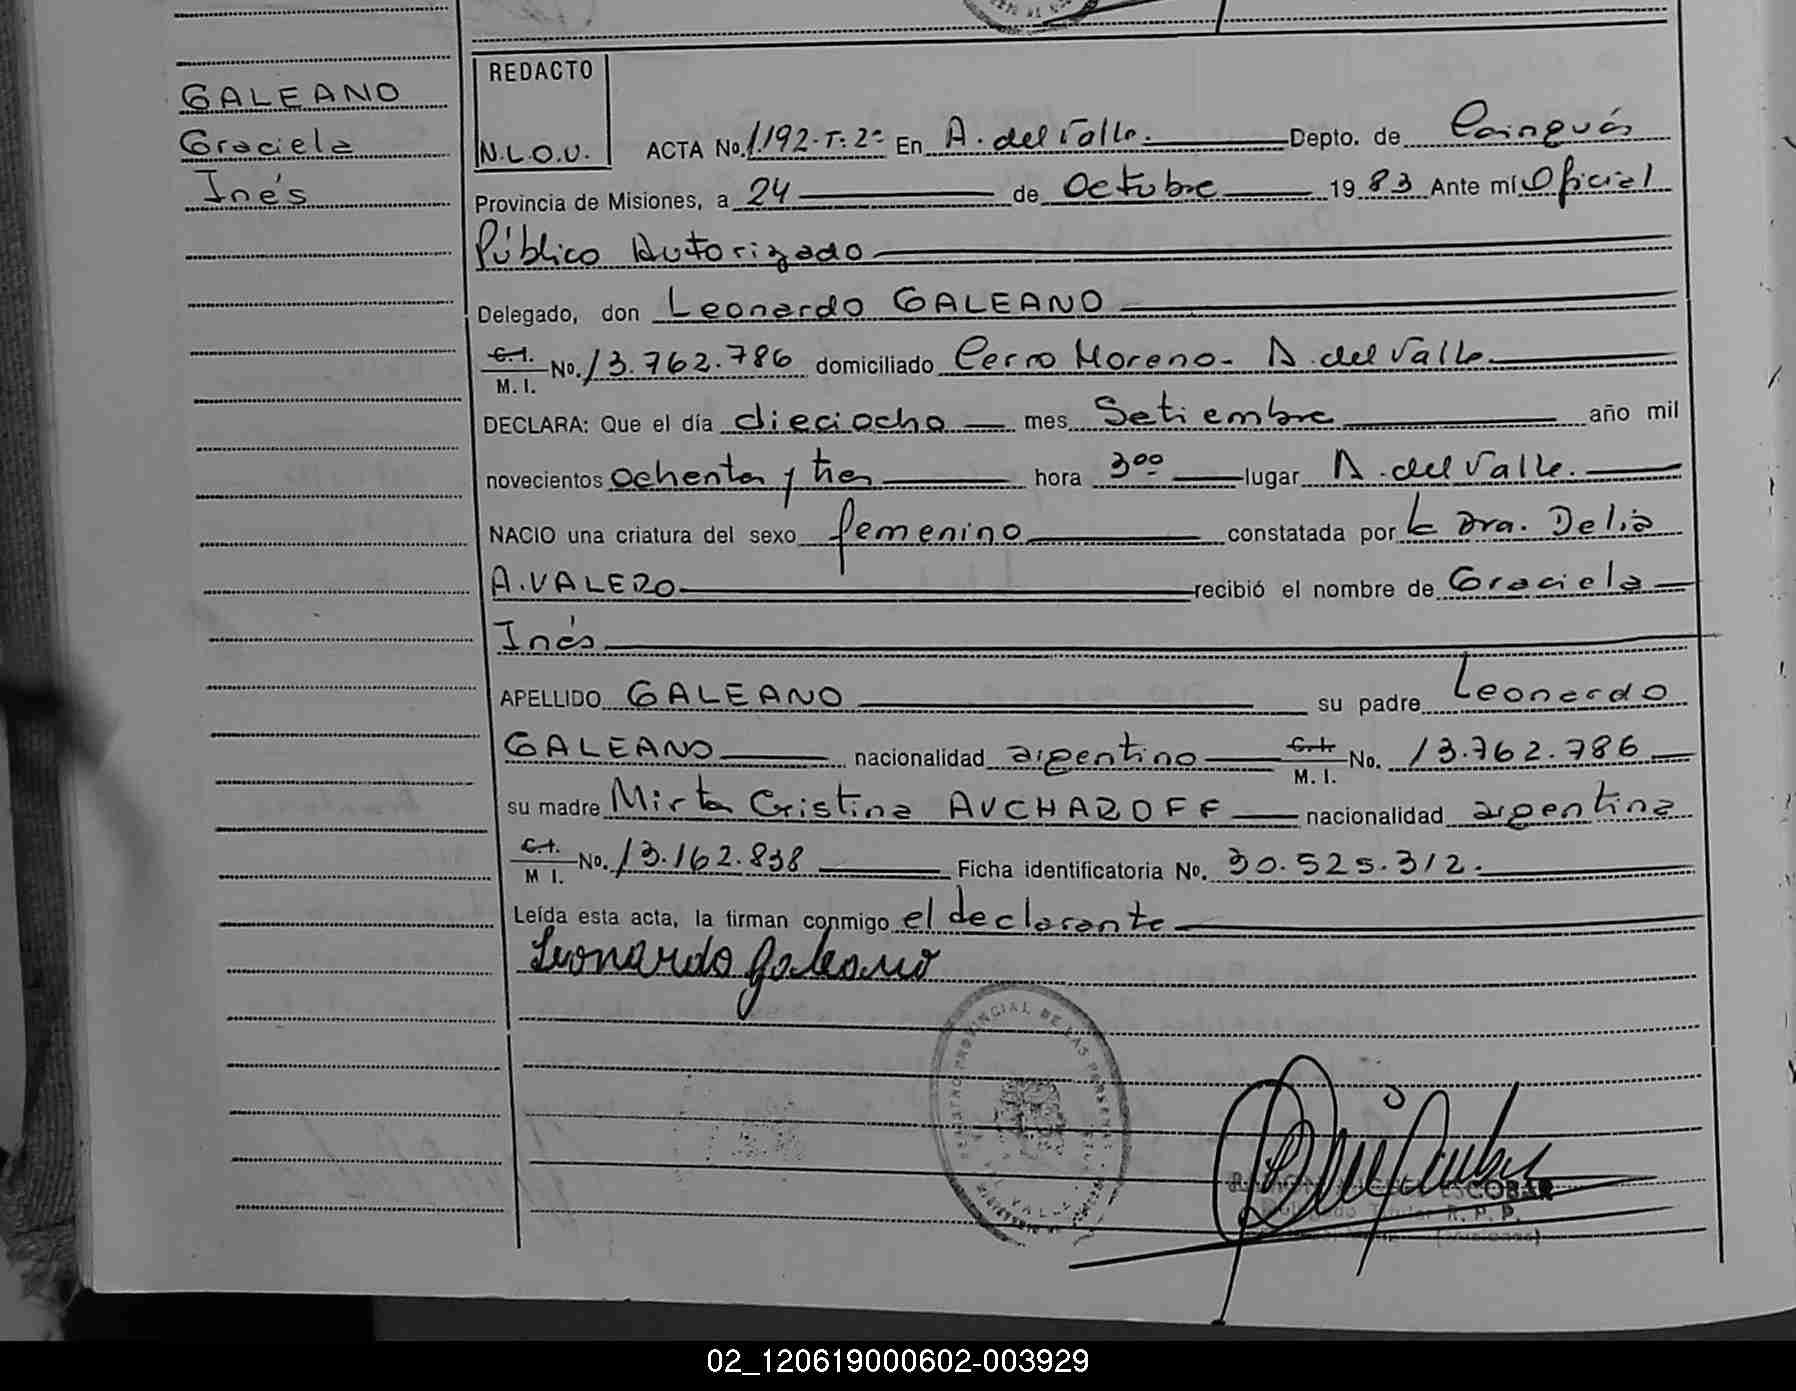 GALEANO
Graciela
Inés
REDACTO
N.L.O.U.
ACTA No. 1.192-T:2º En A. del Valle. Depto. de Cainguás
Provincia de Misiones, a 24 de Octubre 1983 Ante mí Oficial
Público Autorizado
Delegado, don Leonardo GALEANO
C.I. M.I. No. 13.762.786 domiciliado Cerro Moreno - A. del Valle
DECLARA: Que el día dieciocho mes Setiembre año mil
novecientos ochenta y tres hora 3⁰⁰ lugar A. del Valle.
NACIO una criatura del sexo femenino constatada por la Dra. Delia
A. VALERO recibió el nombre de Graciela
Inés
APELLIDO GALEANO su padre Leonardo
GALEANO nacionalidad argentino C.I. M.I. No. 13.762.786
su madre Mirta Cristina AVCHAROFF nacionalidad argentina
C.I. M I. No. 13.162.838 Ficha identificatoria No. 30.525.312.
Leída esta acta, la firman conmigo el declarante
Leonardo Galeano
REGISTRO PROVINCIAL DE LAS PERSONAS
ESCOBAR
Delegado Titular R. P. P.
(Misiones)
02_120619000602-003929